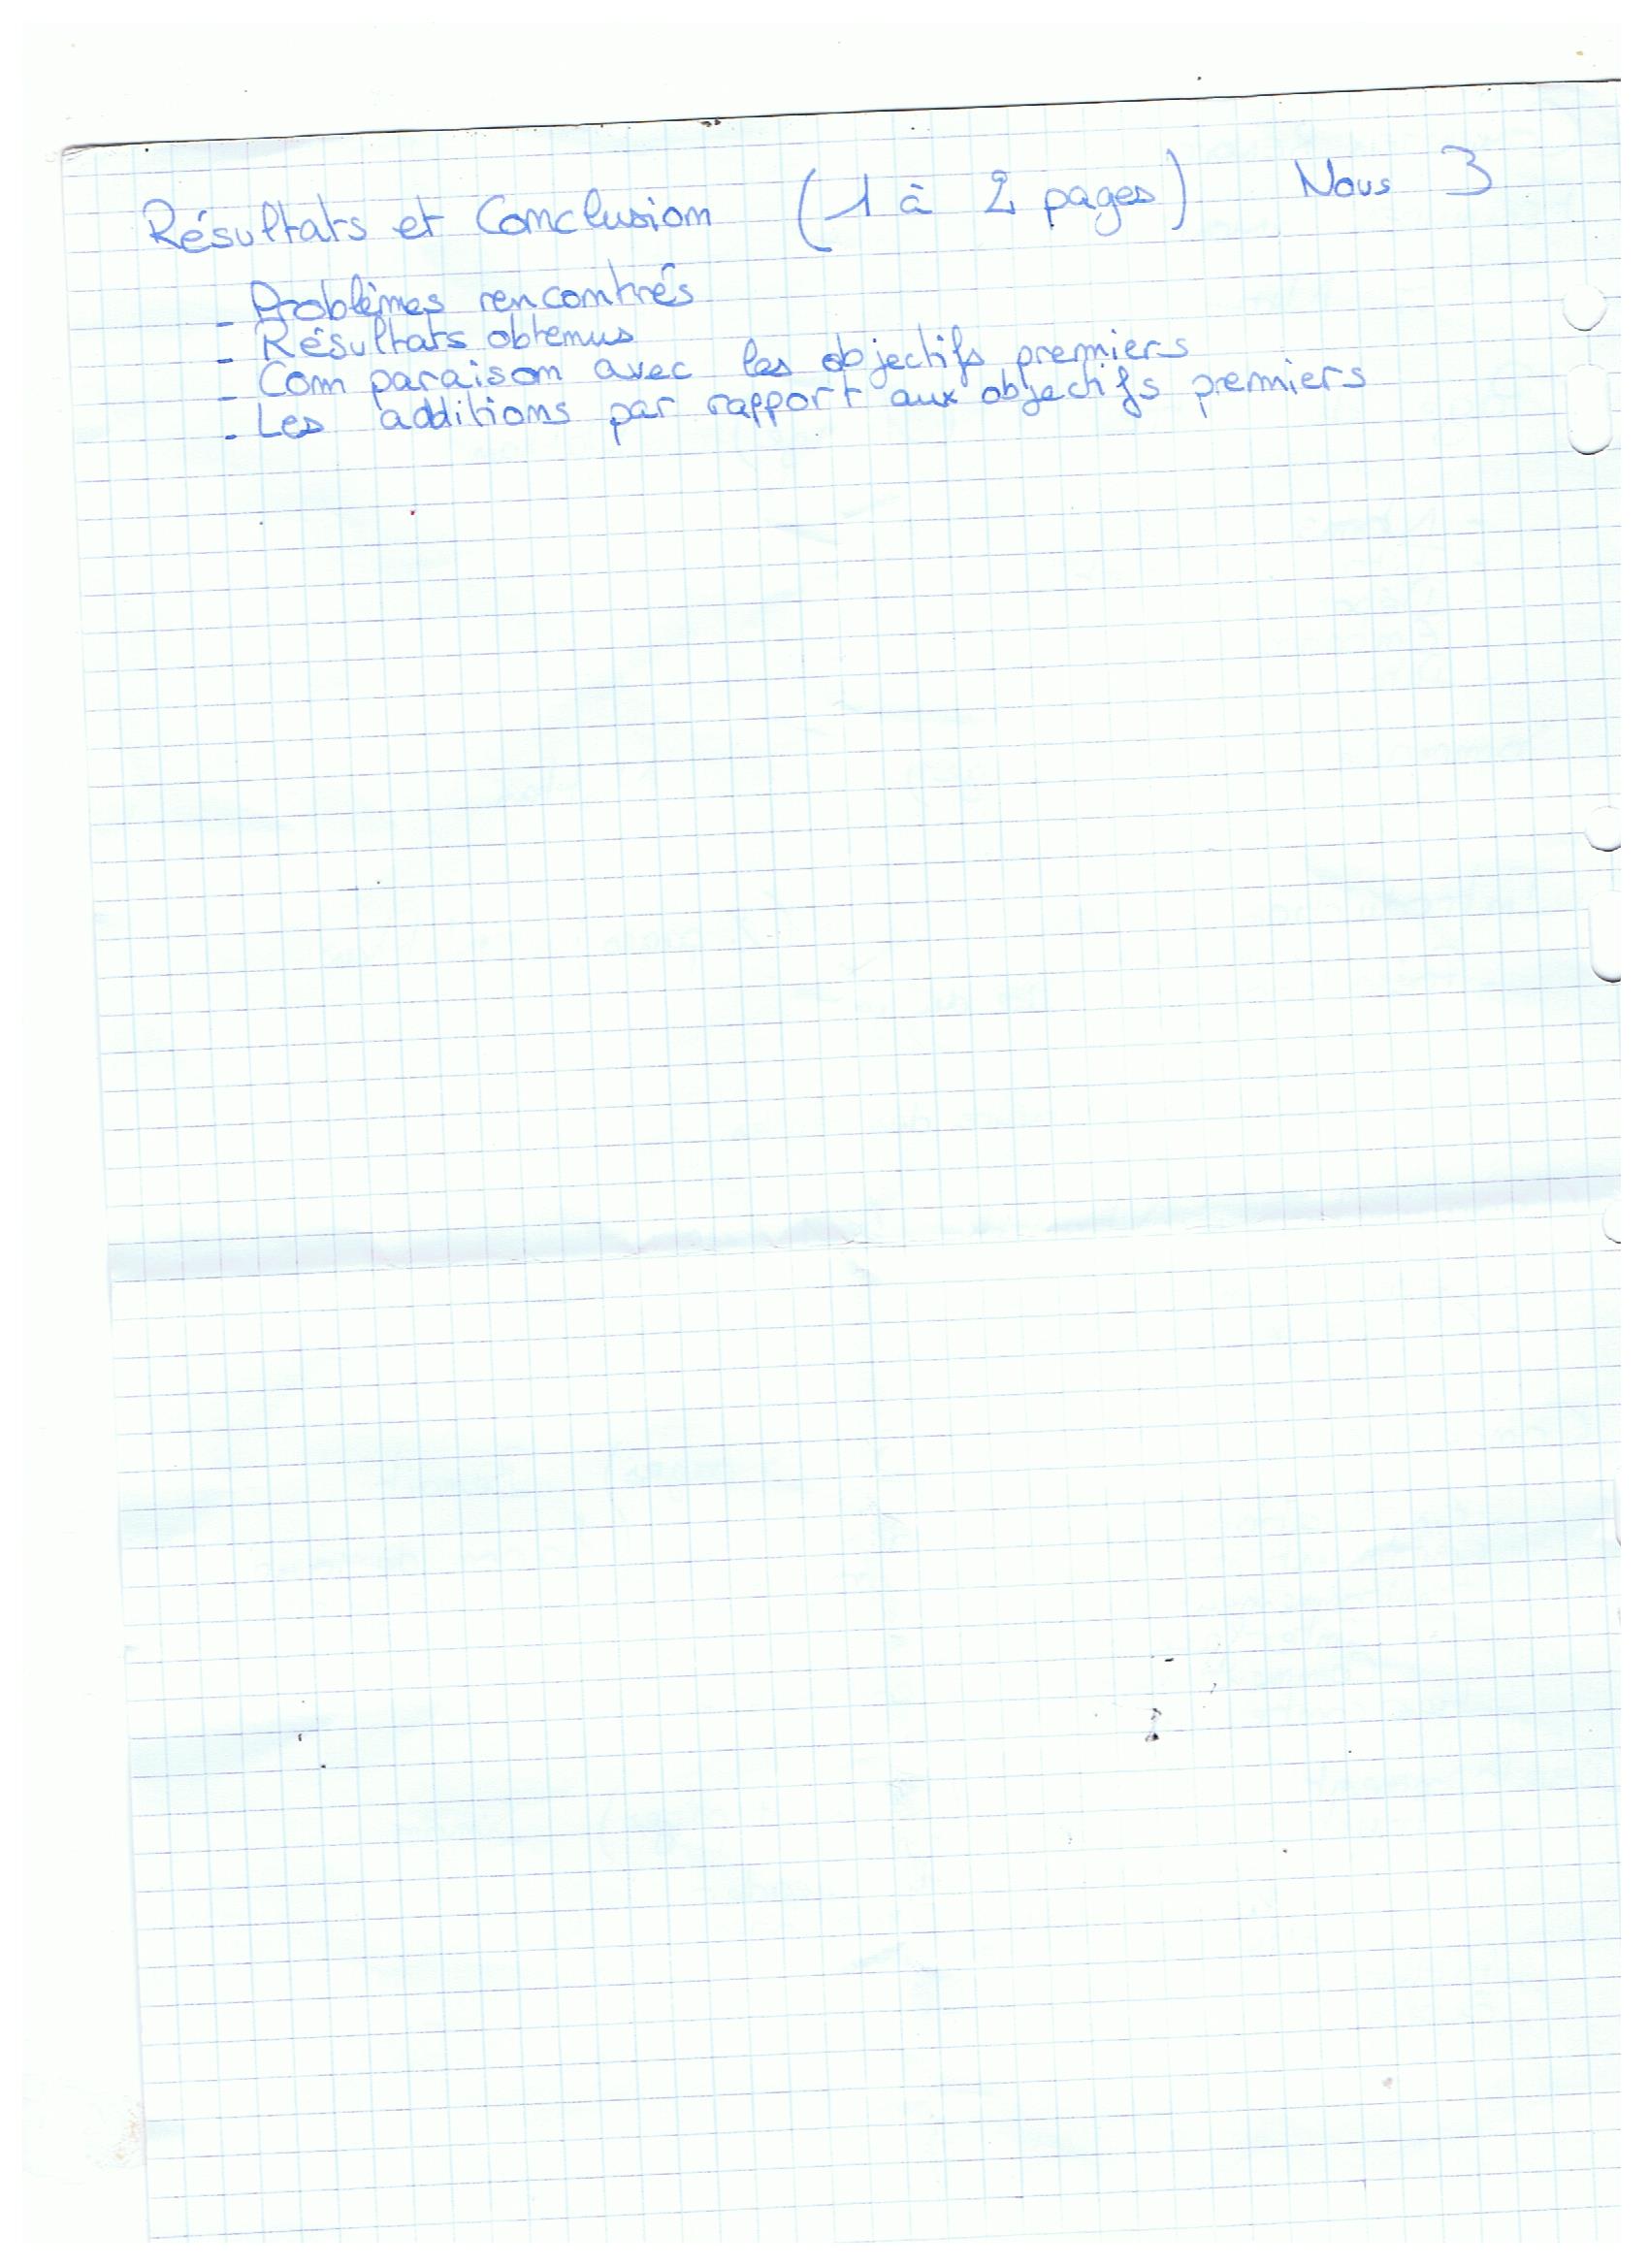 Résultats et Conclusion (1 à 2 pages) Nous 3
- Problèmes rencontrés
- Résultats obtenus
- Comparaison avec les objectifs premiers
- Les additions par rapport aux objectifs premiers